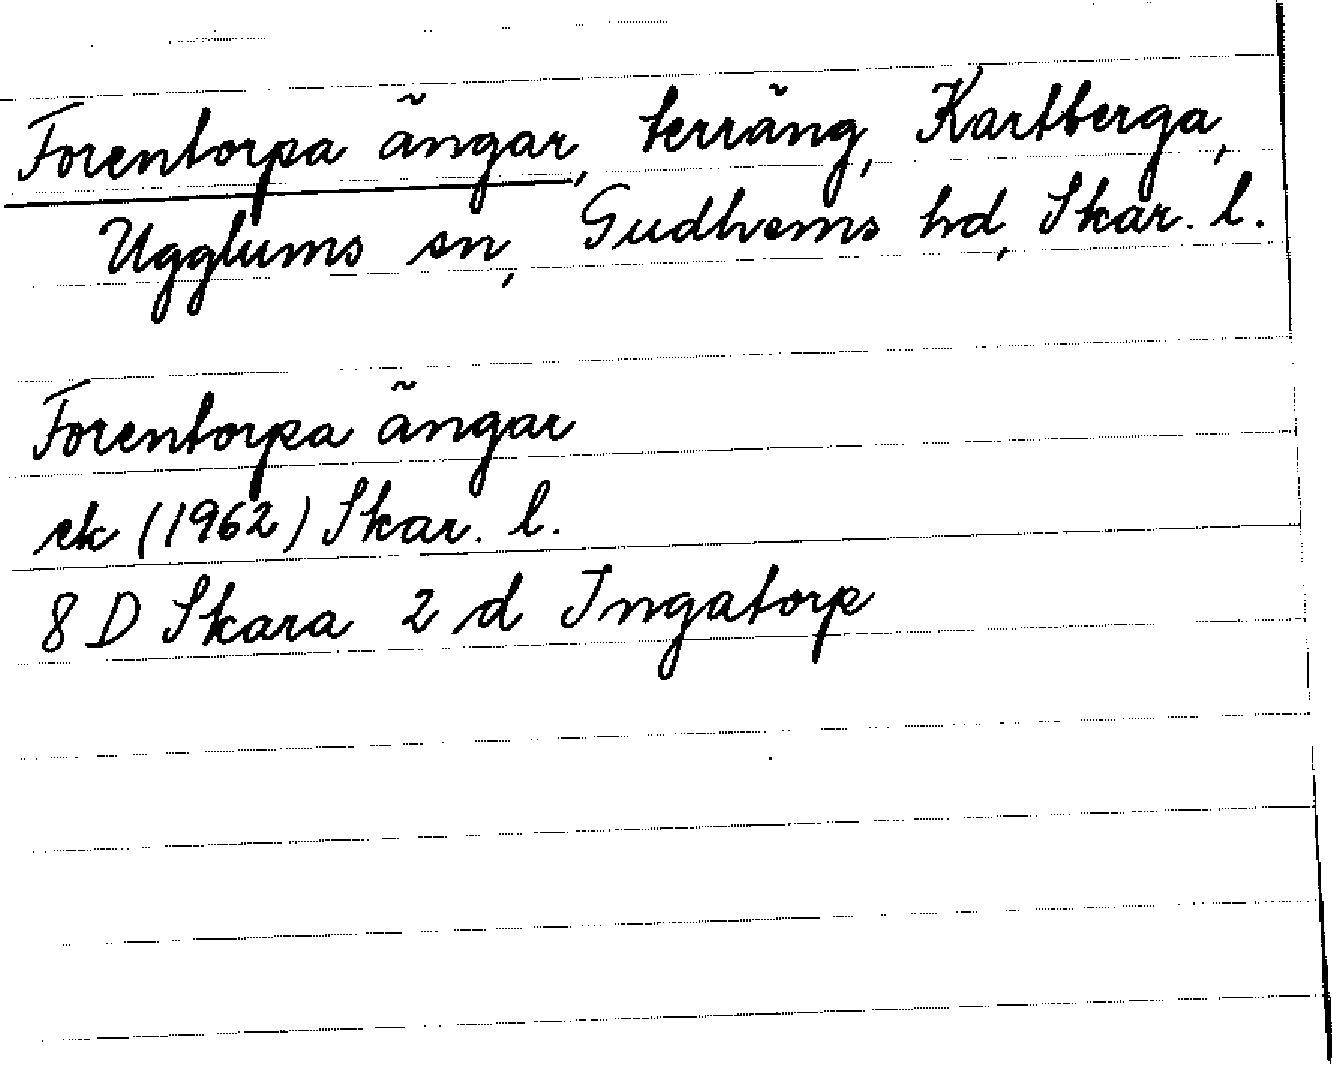 Forentorpa ängar, terräng, Kartberga,
Ugglums sn, Gudhems hd, Skar. l.
Forentorpa ängar
ek (1962) Skar. l.
8 D Skara 2 d Ingatorp